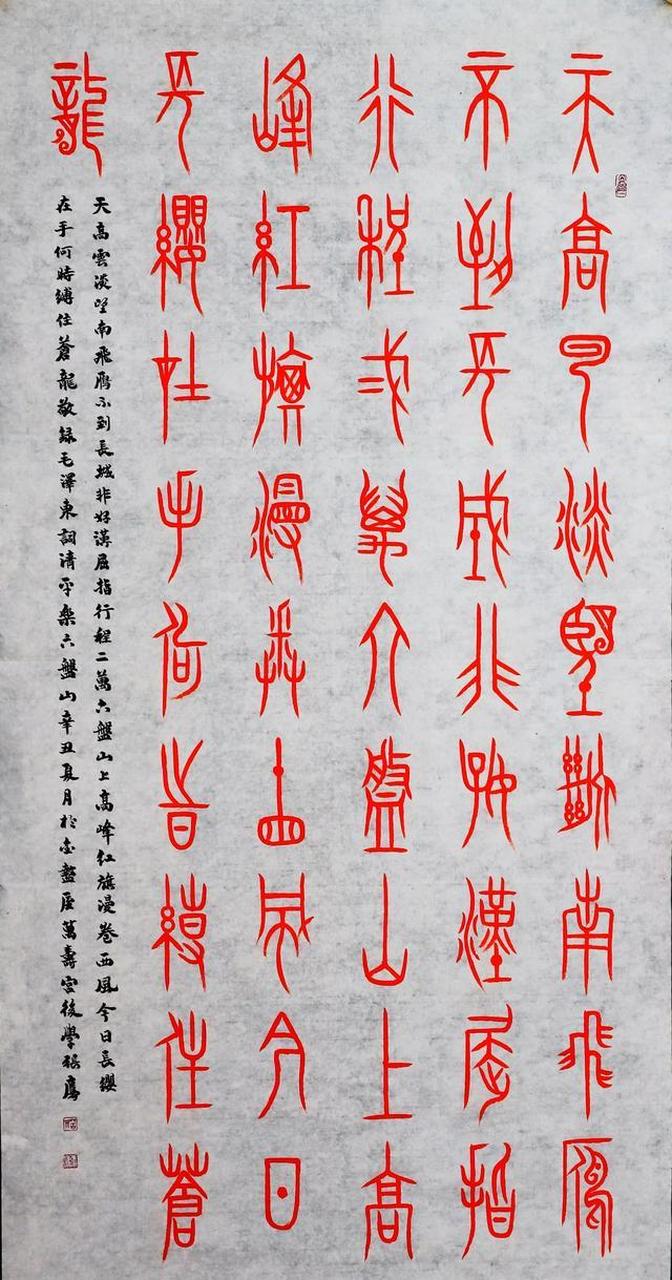 天高云淡望斷南飛雁
不到長城非好漢屈指
行程二萬六盤山上高
峰紅旗漫卷西風今日
長纓在手何時縛住蒼
龍
天高雲淡望南飛雁不到長城非好漢屈指行程二萬六盤山上高峰紅旗漫卷西風今日長纓
在手何時縛住蒼龍敬録毛澤東詞清平樂六盤山辛丑夏月於古盩厔萬壽宮後學張